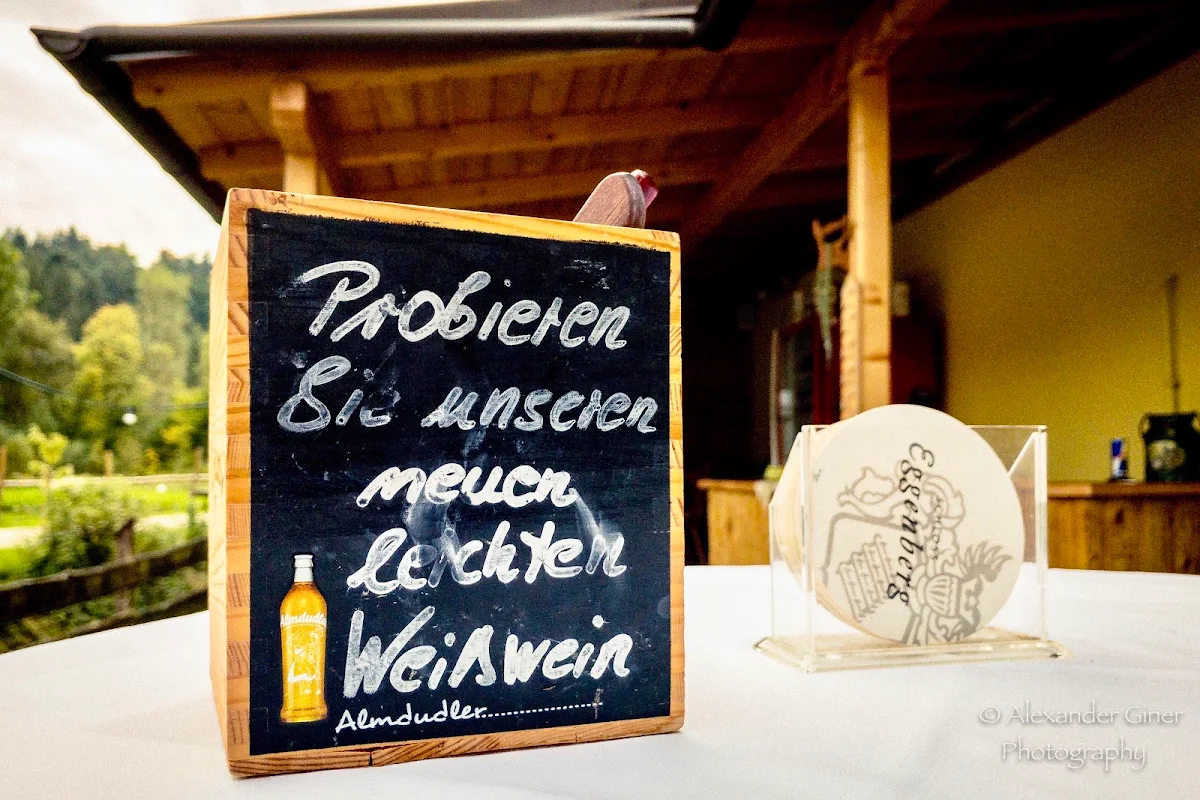 Probieren
Sie unseren
neuen
leichten
Weißwein
Almdudler
Almdudler....................
Eggenberg
© Alexander Giner
Photography